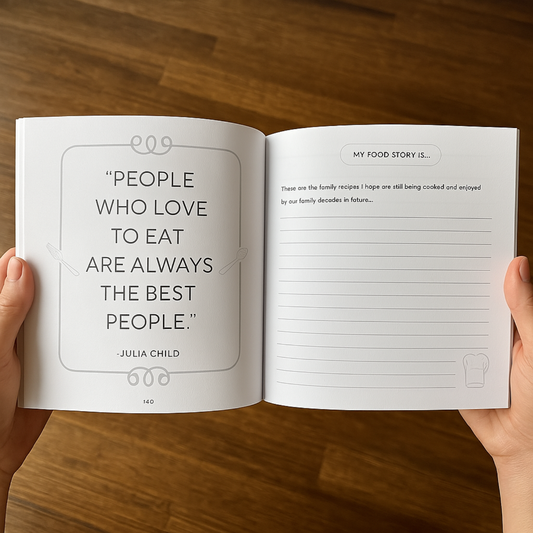 “PEOPLE
WHO LOVE
TO EAT
ARE ALWAYS
THE BEST
PEOPLE.”
-JULIA CHILD
140
MY FOOD STORY IS...
These are the family recipes I hope are still being cooked and enjoyed
by our family decades in future...